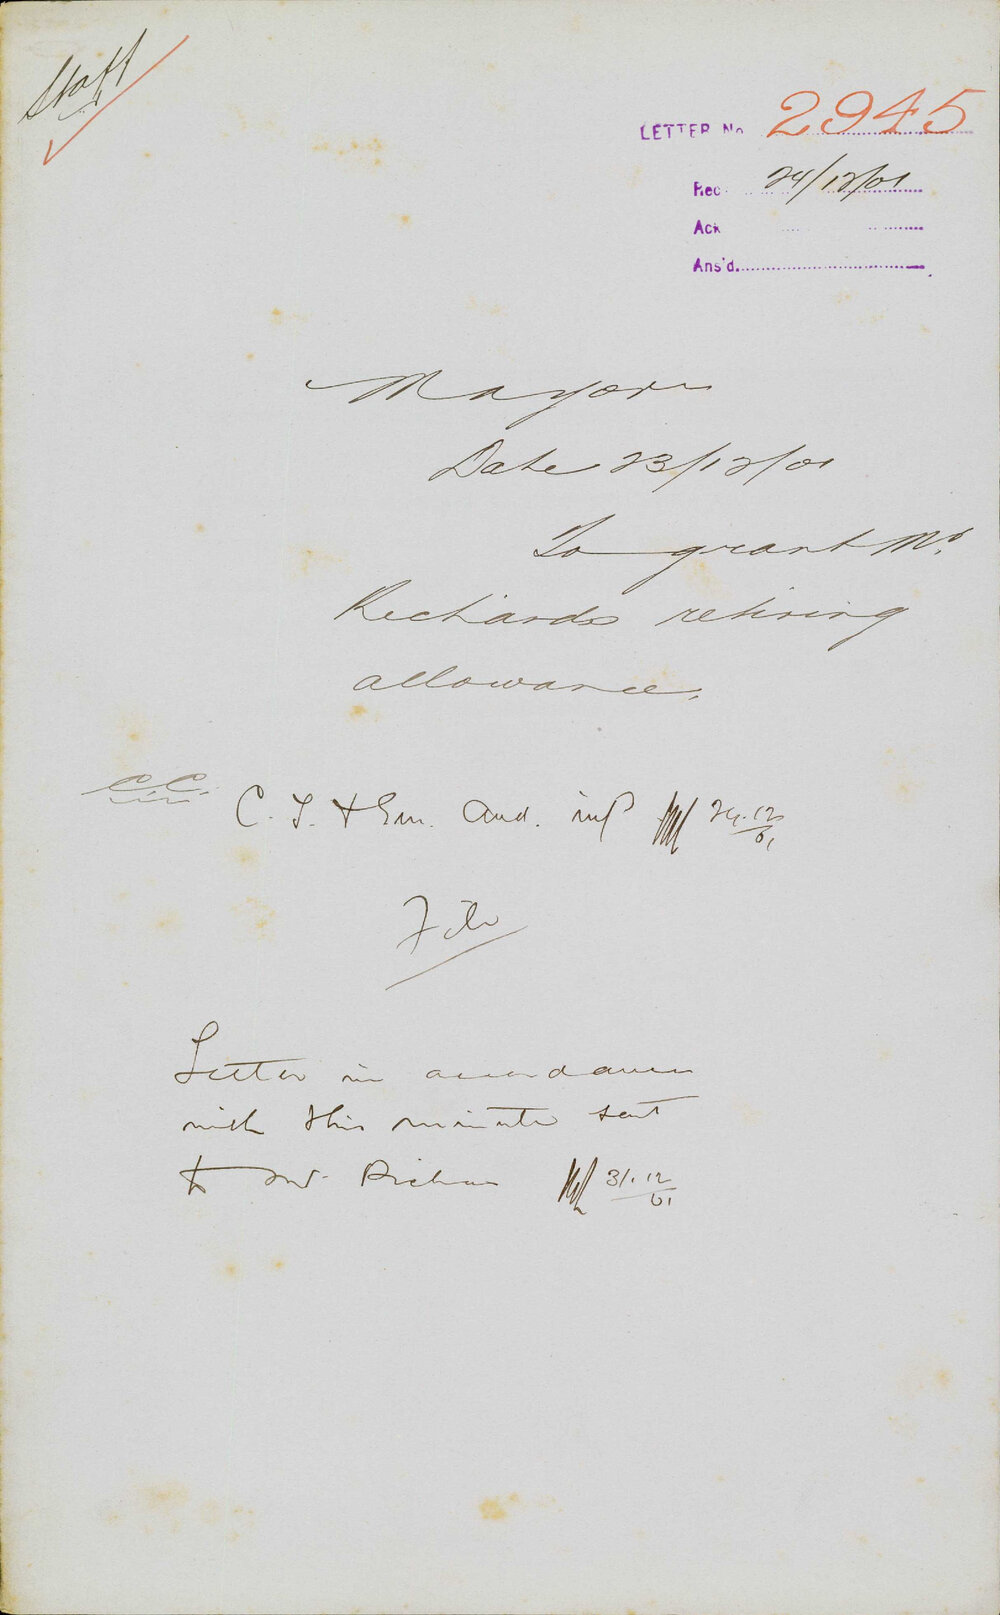 Staff
LETTER No 2945
Rec 24/12/01
Ack
Ans'd.
Mayor
Date 23/12/01
To grant Mr
Richards retiring
allowance.
C.C.
C. T. & Aud. 24.12/01
File
Letter in accordance
with this minute sent
to Mr Richards 31.12/01